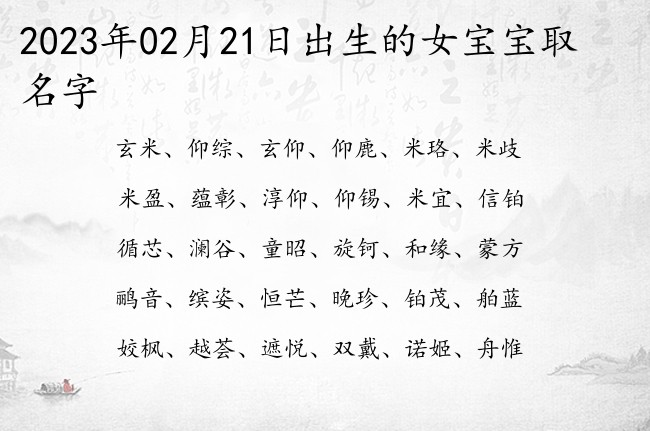 2023年02月21日出生的女宝宝取
名字
玄米、仰综、玄仰、仰鹿、米珞、米歧
米盈、蕴彰、淳仰、仰锡、米宜、信铂
循芯、澜谷、童昭、旋钶、和缘、蒙方
鹂音、缤姿、恒芒、晚珍、铂茂、舶蓝
姣枫、越荟、遮悦、双戴、诺姬、舟惟